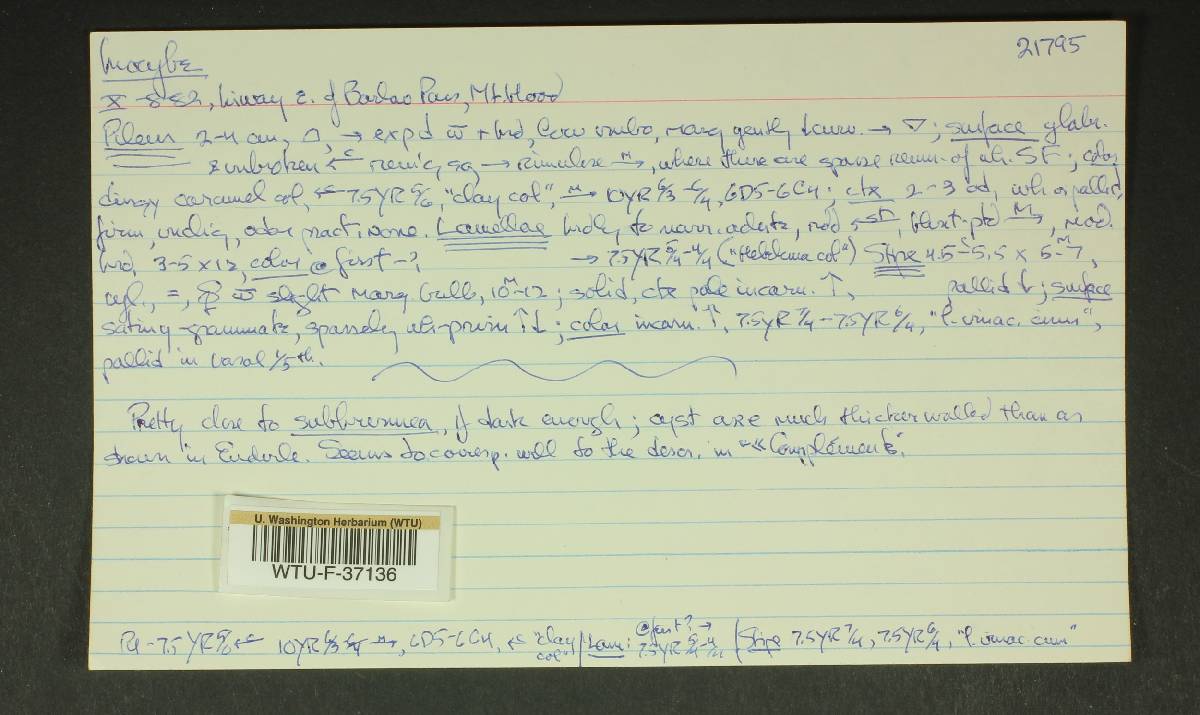 Inocybe 21795
X-8-82, hiway E. of Barlao Pass, Mt Hood
Pileus 2-4 cm, △, → exp'd w̄ + brd, low umbo, marg gently → ▽; surface glabr.
& unbroken ←C → rimulose M→, where there are sparse remn. of wh. ST; color
dingy caramel col, ←C 7.5YR 5/6, "clay col", M→ 10YR 6/3-6/4, 6D5-6C4; ctx 2-3 pallid,
firm, odor pract. none. Lamellae narr. adnate, mod M→, mod.
brd, 3-5 x 12, color @ first -? → 7.5YR 5/4-4/4 ("Hebeloma col") Stipe 4.5-5.5 x 5-7,
cyl, =, w̄ slight marg bulb, 10-12; solid, ctx pale incarn. ↑, pallid ↓; surface
satiny, sparsely wh-pruin ↑↓; color incarn. ↑, 7.5YR 7/4 - 7.5YR 6/4, "l. vinac. cinn",
pallid in basal 1/5th.
Pretty close to subbrunnea, if dark enough; cyst are much thicker walled than as
shown in Enderle. Seems to corresp. well to the descr. in "Compléments".
U. Washington Herbarium (WTU)
WTU-F-37136
Pil - 7.5YR 5/6 ←C 10YR 6/3 6/4 M→, 6D5-6C4, ←C "clay col" / Lam: @ first? → 7.5YR 5/4-4/4 / Stipe 7.5YR 7/4, 7.5YR 6/4, "l. vinac. cinn"